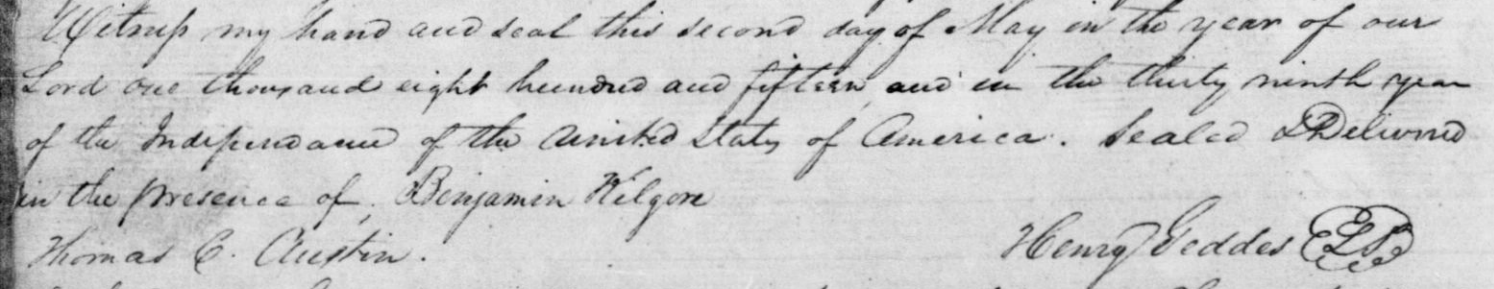 Witness my hand and seal this second day of May in the year of our
Lord one thousand eight hundred and fifteen and in the thirty ninth year
of the Independance of the United States of America. Sealed & Delivered
in the presence of, Benjamin Kilgore
Thomas C. Austin. Henry Geddes LS